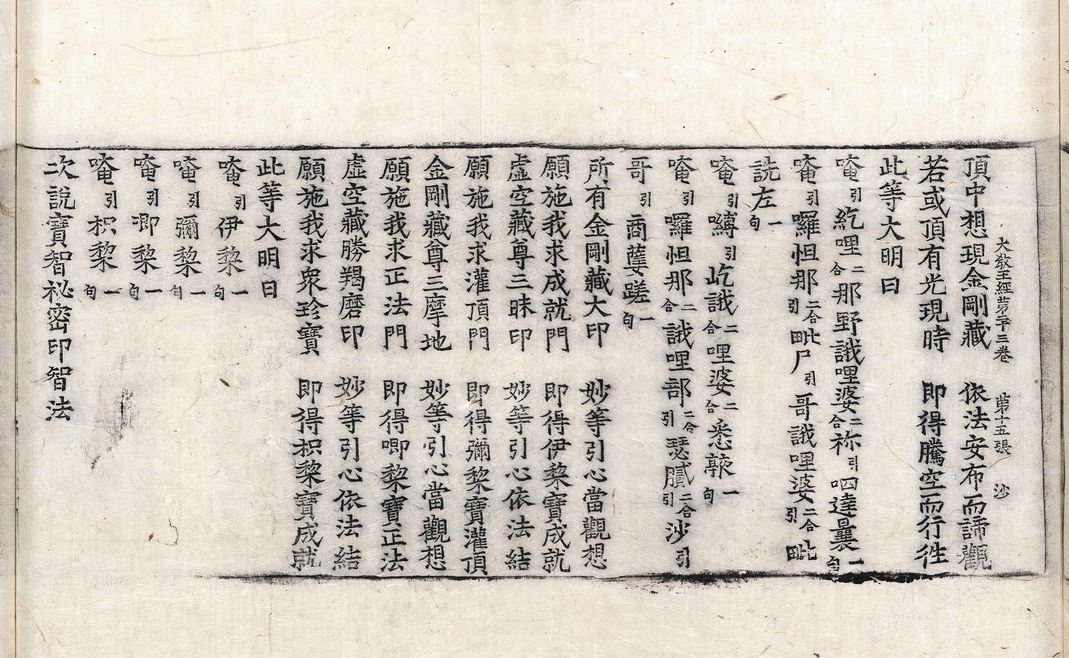 大教王經第二十三卷　第十五張　沙
頂中想現金剛藏　依法安布而諦觀
若或頂有光現時　即得騰空而行往
此等大明曰
唵引紇哩二合那野誐哩婆二合祢引呬達曩一句
唵引囉怛那二合引毗尸引哥誐哩婆二合引毗
詵左一句
唵引嚩引屹誐二合哩婆二合悉𠆙一句
唵引囉怛那二合誐哩部二合引瑟膩二合引沙引
哥引商藍蹉一句
所有金剛藏大印　妙等引心當觀想
願施我求成就門　即得伊黎寶成就
虛空藏尊三昧印　妙等引心依法結
願施我求灌頂門　即得彌黎寶灌頂
金剛藏尊三摩地　妙等引心當觀想
願施我求正法門　即得唧黎寶正法
虛空藏勝羯磨印　妙等引心依法結
願施我求衆珍寶　即得枳黎寶成就
此等大明曰
唵引伊黎一句
唵引彌黎一句
唵引唧黎一句
唵引枳黎一句
次說寶智祕密印智法